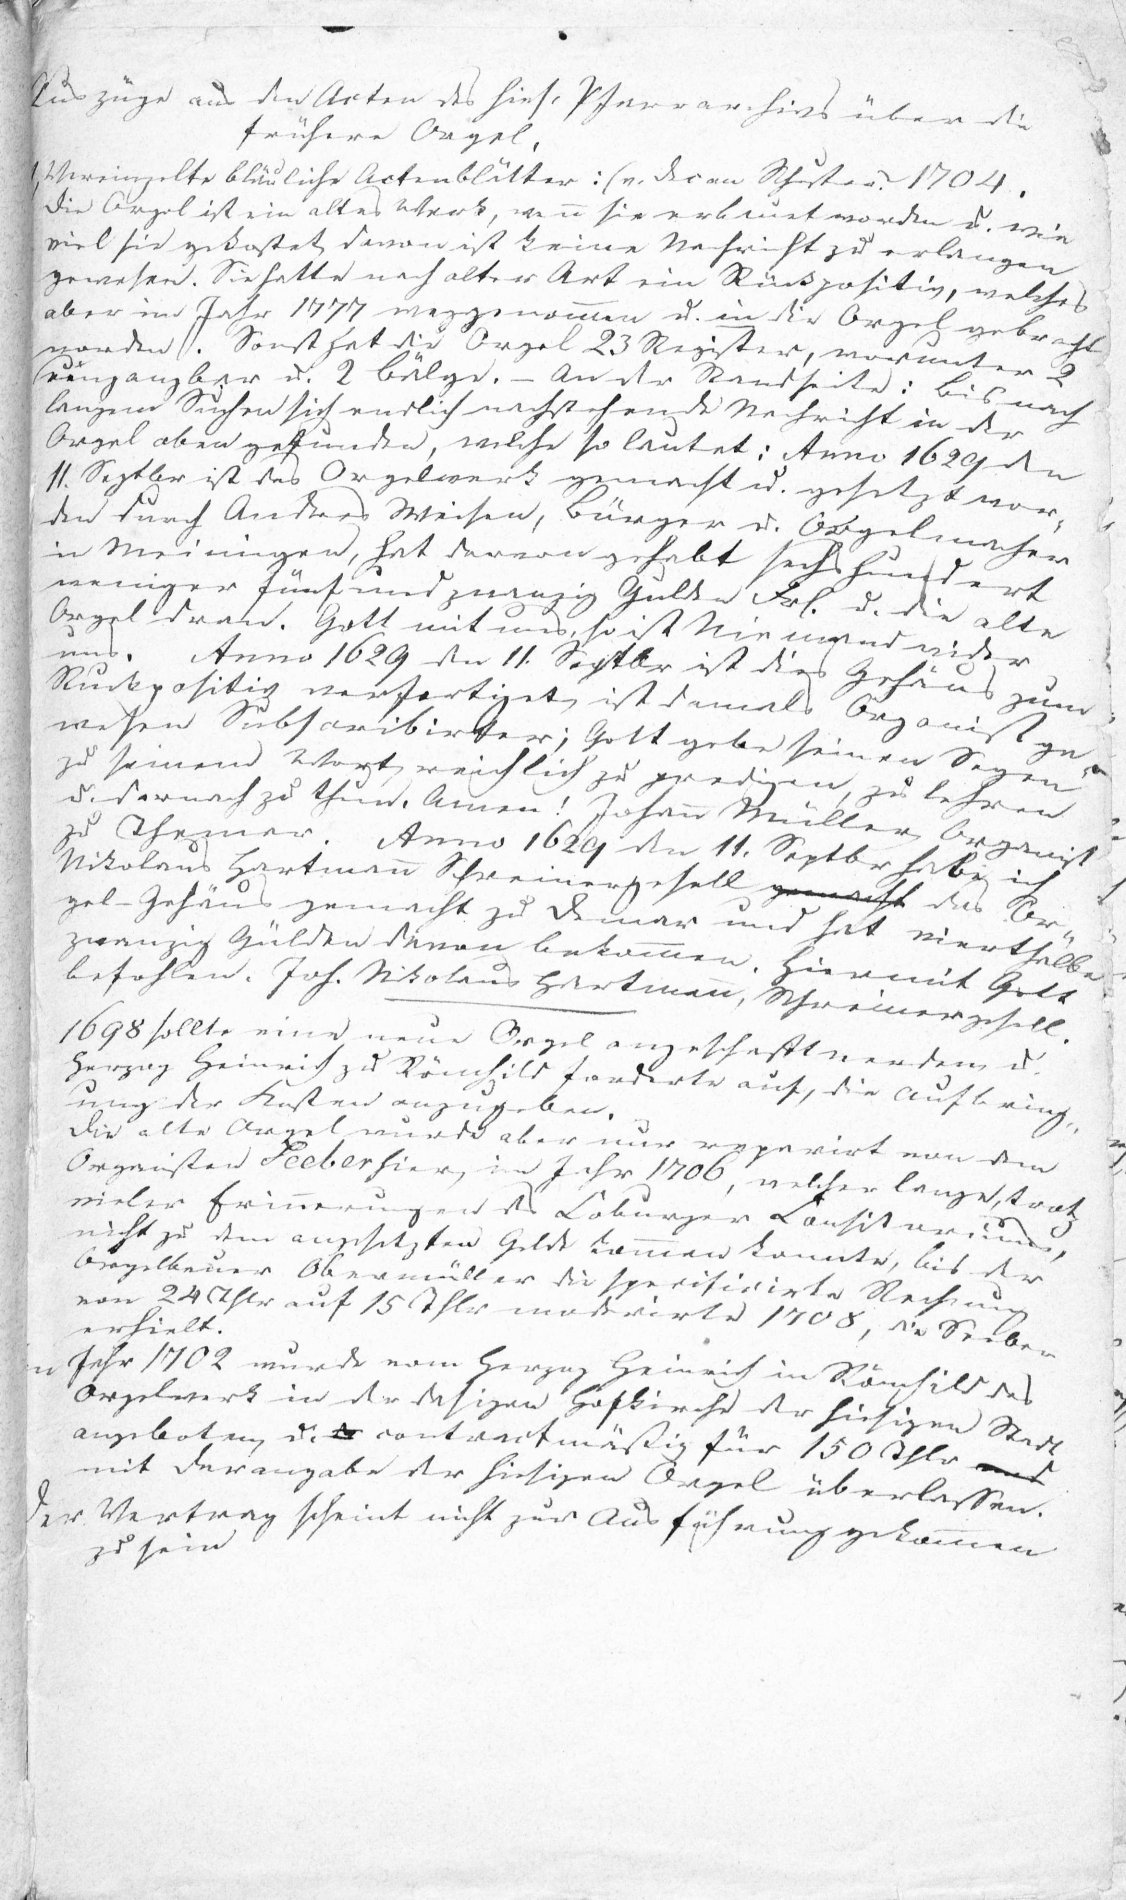 Auszüge aus den Acten des hies. Pfarrarchivs über die
frühere Orgel.
1, Vereinzelte bläuliche Actenblätter: (v. Decan Schuster. 1704.
Die Orgel ist ein altes Werk, wenn sie erbauet worden u. wie
viel sie gekostet, davon ist keine Nachricht zu erlangen
gewesen. Sie hatte nach alter Art ein Rückpositiv, welches
aber im Jahr 1777 weggenommen u. in die Orgel gebracht
worden. Sonst hat die Orgel 23 Register, worunter 2
ungangbar u. 2 Bälge. - An der Randseite: Bis nach
langem Suchen sich endlich nachstehende Nachricht in der
Orgel oben gefunden, welche so lautet: Anno 1629 den
11. Septbr ist das Orgelwerk gemacht u. gesetzt wor-
den durch Andres Weisen, Bürger u. Orgelmacher
in Meiningen, hat darvon gehabt sechshundert
weniger fünfundzwanzig Gulden Frl. u. die alte
Orgel dran. Gott mit uns, so ist Niemand wider
uns. Anno 1629 den 11. Septbr ist dies Gehäus zum
Ruckpositiv verfertiget, ist damals Organist ge-
wesen Subscribirter; Gott gebe seinen Segen
zu seinem Wort, reichlich zu predigen, zu lehren
u. darnach zu thun. Amen! Johann Müller, Organist
zu Themar. Anno 1629 den 11. Septbr habe ich
Nikolaus Hartmann Schreinergesell gemacht das Or-
gel-Gehäus gemacht zu Demar und hat vierthalbe
zwanzig Gülden davon bekommen. Hiermit Gott
befohlen. Joh. Nikolaus Hartman, Schreinergesell.
1698 sollte eine neue Orgel angeschafft werden u.
Herzog Heinrich zu Römhild forderte auf, die Aufbring-
ung der Kosten anzugeben.
Die alte Orgel wurde aber nur reparirt von dem
Organisten Seeber hier, im Jahr 1706, welcher lange, trotz
vieler Erinnerungen des Coburger Consistoriums,
nicht zu dem angesetzten Gelde kommen konnte, bis der
Orgelbauer Obermüller die specificirte Rechnung
von 24 Thlr auf 15 Thlr moderirte 1708, die Seeber
erhielt.
Im Jahr 1702 wurde vom Herzog Heinrich in Römhild das
Orgelwerk in der dasigen Hofkirche der hiesigen Stadt
angeboten, u. contractmäßig für 150 Thlr und
mit Darangabe der hiesigen Orgel überlassen.
Der Vertrag scheint nicht zur Ausführung gekommen
zu sein